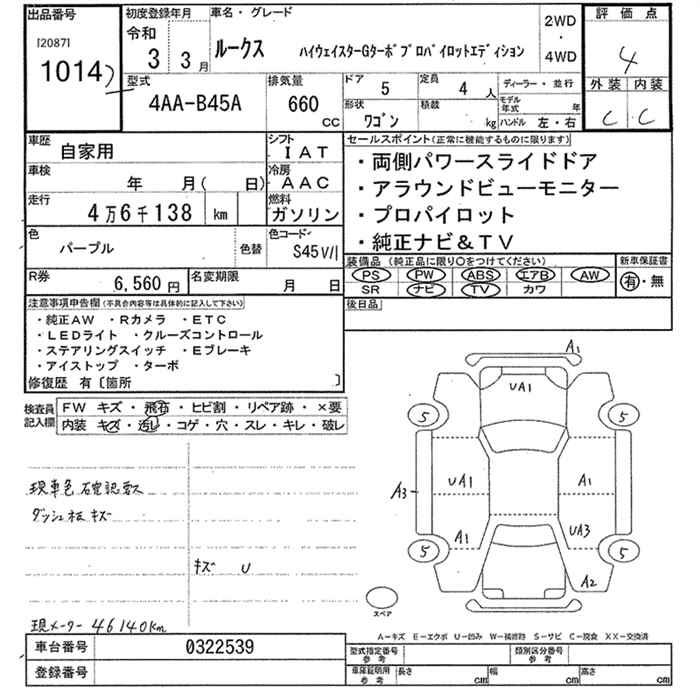 出品番号
[2087]
1014
初度登録年月
令和
3 3月
車名・グレード
ルークス ハイウェイスターGターボプロパイロットエディション
2WD
・
4WD
評価点
4
外装 内装
C C
型式
4AA-B45A
排気量
660
CC
ドア
5
定員
4人
形状
ワゴン
積載
kg
ディーラー・並行
モデル年式 年
ハンドル 左・右
車歴
自家用
シフト
IAT
車検
年 月( 日)
冷房
AAC
走行
4万6千138 km
燃料
ガソリン
色
パープル
色替
色コード
S45V/1
R券
6,560円
名変期限
月 日
セールスポイント(正常に機能するものに限ります)
・両側パワースライドドア
・アラウンドビューモニター
・プロパイロット
・純正ナビ&TV
装備品(純正品に限り○をつけてください)
PS PW ABS エアB AW
SR ナビ TV カワ
新車保証書
有・無
後日品
注意事項申告欄(不具合内容等は具体的に記入して下さい)
・純正AW ・Rカメラ ・ETC
・LEDライト ・クルーズコントロール
・ステアリングスイッチ ・Eブレーキ
・アイストップ ・ターボ
修復歴 有〔箇所 〕
検査員記入欄
FW キズ・飛石・ヒビ割・リペア跡・×要
内装 キズ・汚れ・コゲ・穴・スレ・キレ・破レ
現車色確認要ス
ダッシュ板キズ
キズ U
現メーター 46140km
A1
UA1
5 5
A3 UA1 A1
A1 UA3
5 5
A2
スペア
A―キズ E―エクボ U―凹み W―補修跡 S―サビ C―腐食 XX―交換済
車台番号 0322539
登録番号
型式指定番号 参考
類別区分番号 参考
車庫証明用 参考
長さ cm 幅 cm 高さ cm